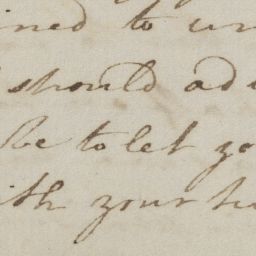 ined to un
should ad
be to let yo
ith your hu